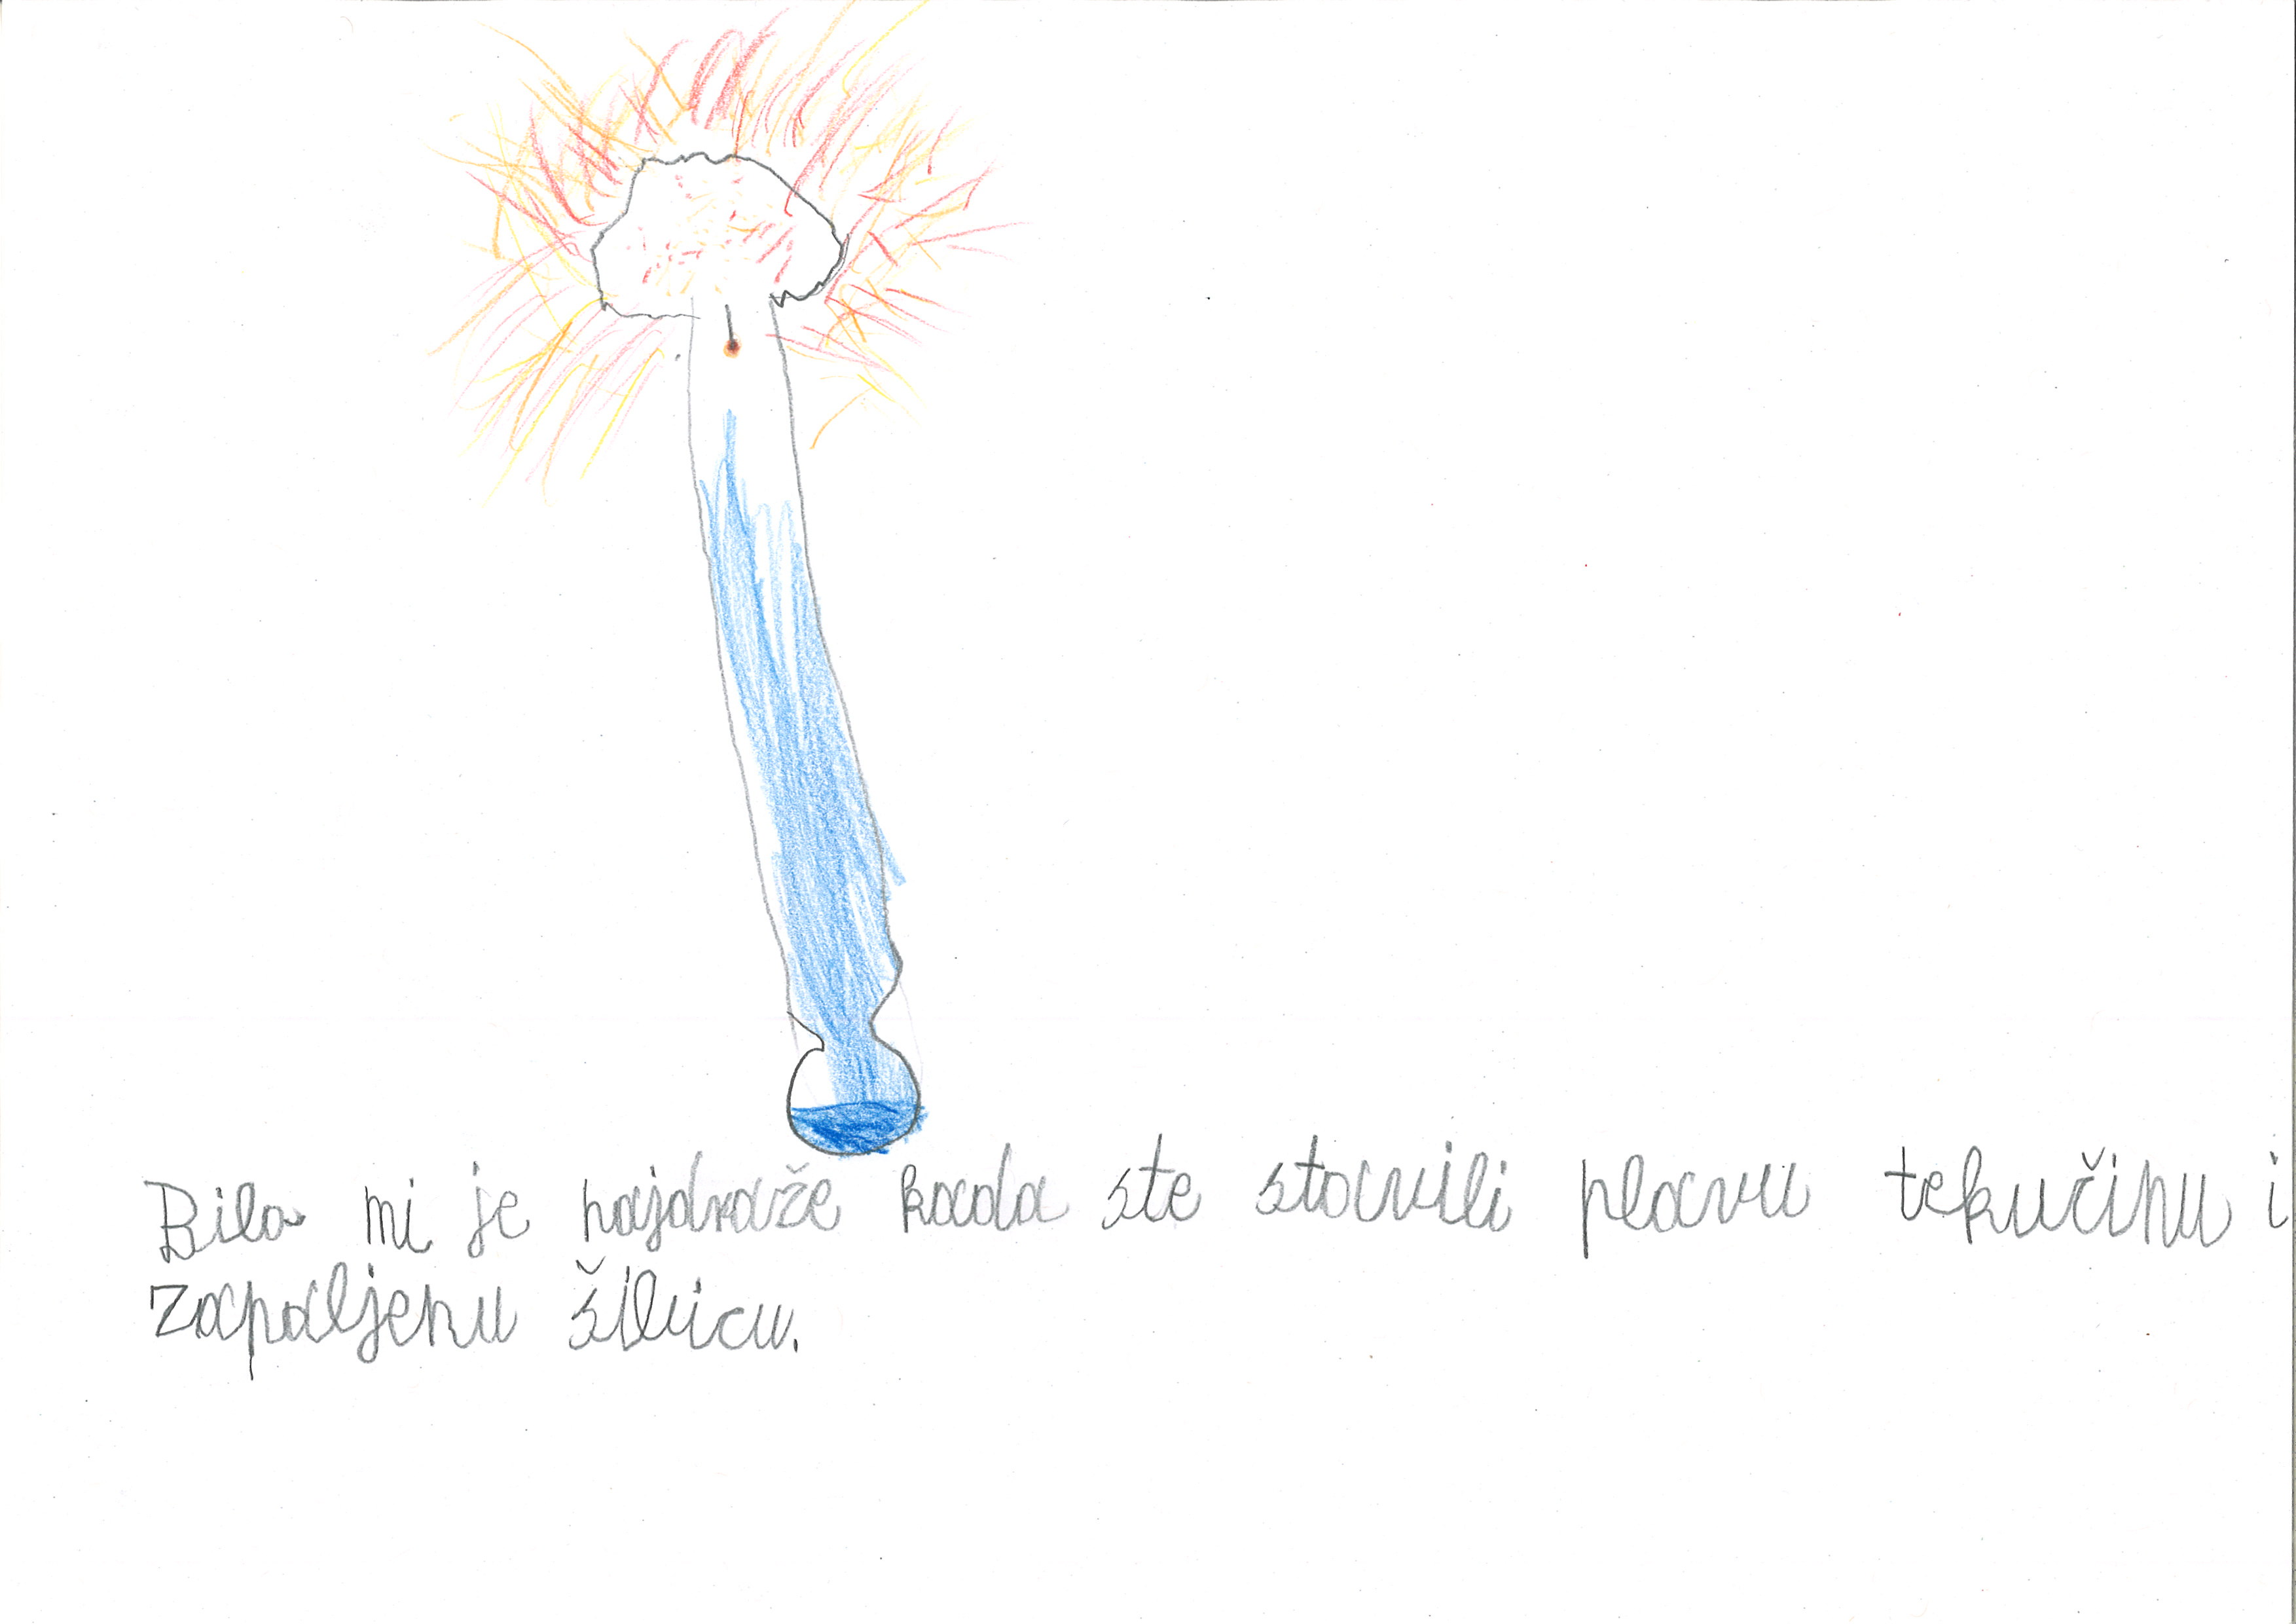 Bilo mi je najdraže kada ste stavili plavu tekučinu i
zapaljenu šibicu.